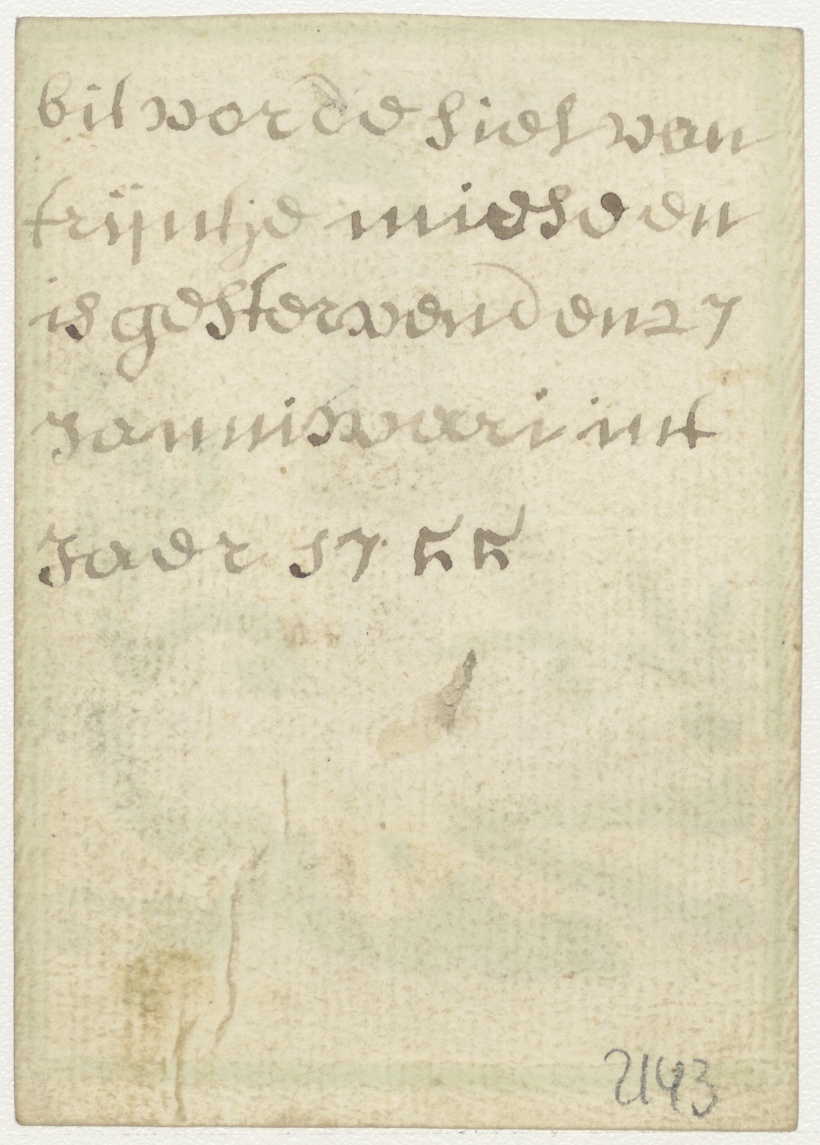 bit vor de siel van
trijntje miese en
is gestervenden 27
Janniwari int
Jaer 1755
2143